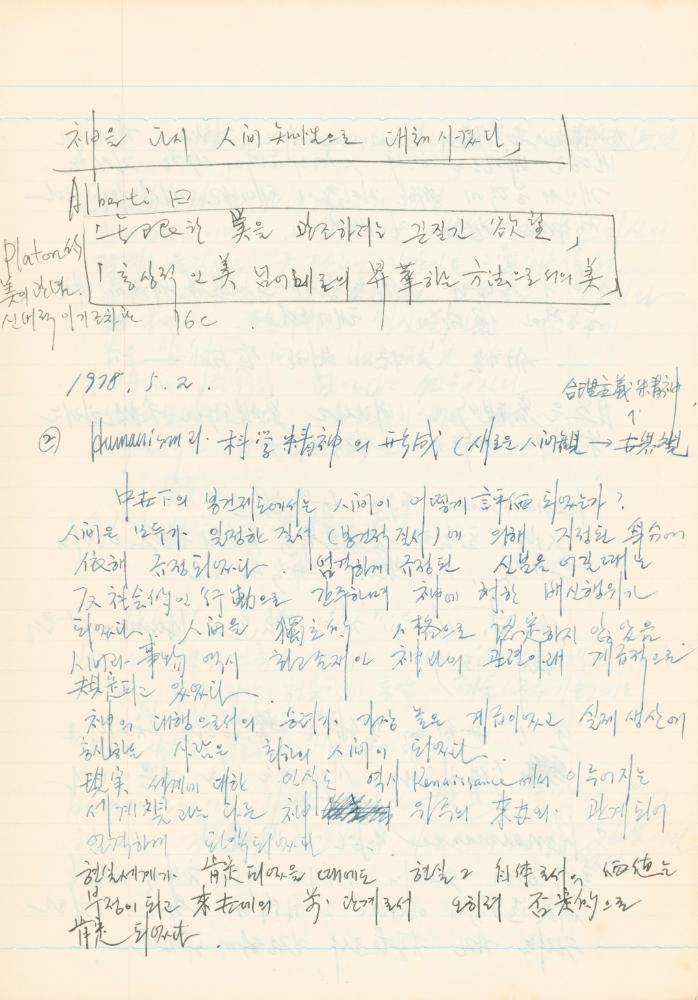 神을 다시 人间 으로 대해 시켰다」
Alberti 曰
「无限한 美을 관조하려는 끈질긴 欲望」
「흥상적 인 美 넘어에로의 昇華하는 方法으로서의 美」
Platon的
美의 관념.
16c
1978. 5. 2.
合理主義 精神
↑
② Humanism과 科学精神 의 形成 (새로운 人间観 → 世界観
中世下의 봉건제도에서는 人间이 어떻게 評価 되었는가?
人间은 모두가 일정한 질서 (봉건적 질서)에 의해 지정된 身分에
依해 규정되었다. 엄격하게 규정된 신분을 어길때는
反社会的인 行動으로 간주하며 神에 対한 배신행위가
되었다. 人间을 獨立的 人格으로 認定하지 않았음
人间과 事物 역시 최고존재인 神과의 관련아래 계급적으로
規定되고 있었다.
神의 대행으로서의 승려가 가장 높은 계급이었고 실제 생산에
종사하는 사람은 최하의 人间이 되었다.
現実 세계에 대한 인식도 역시 Renaissance에서 이루어지는
세계 과는 다른 神 위주의 来世와 관계되어
엄격하게 되었다.
현실세계가 肯定되었을 때에도 현실 그 自体로서의 価値는
부정이 되고 来世에의 关계로서 오히려 否定的으로
肯定 되었다.